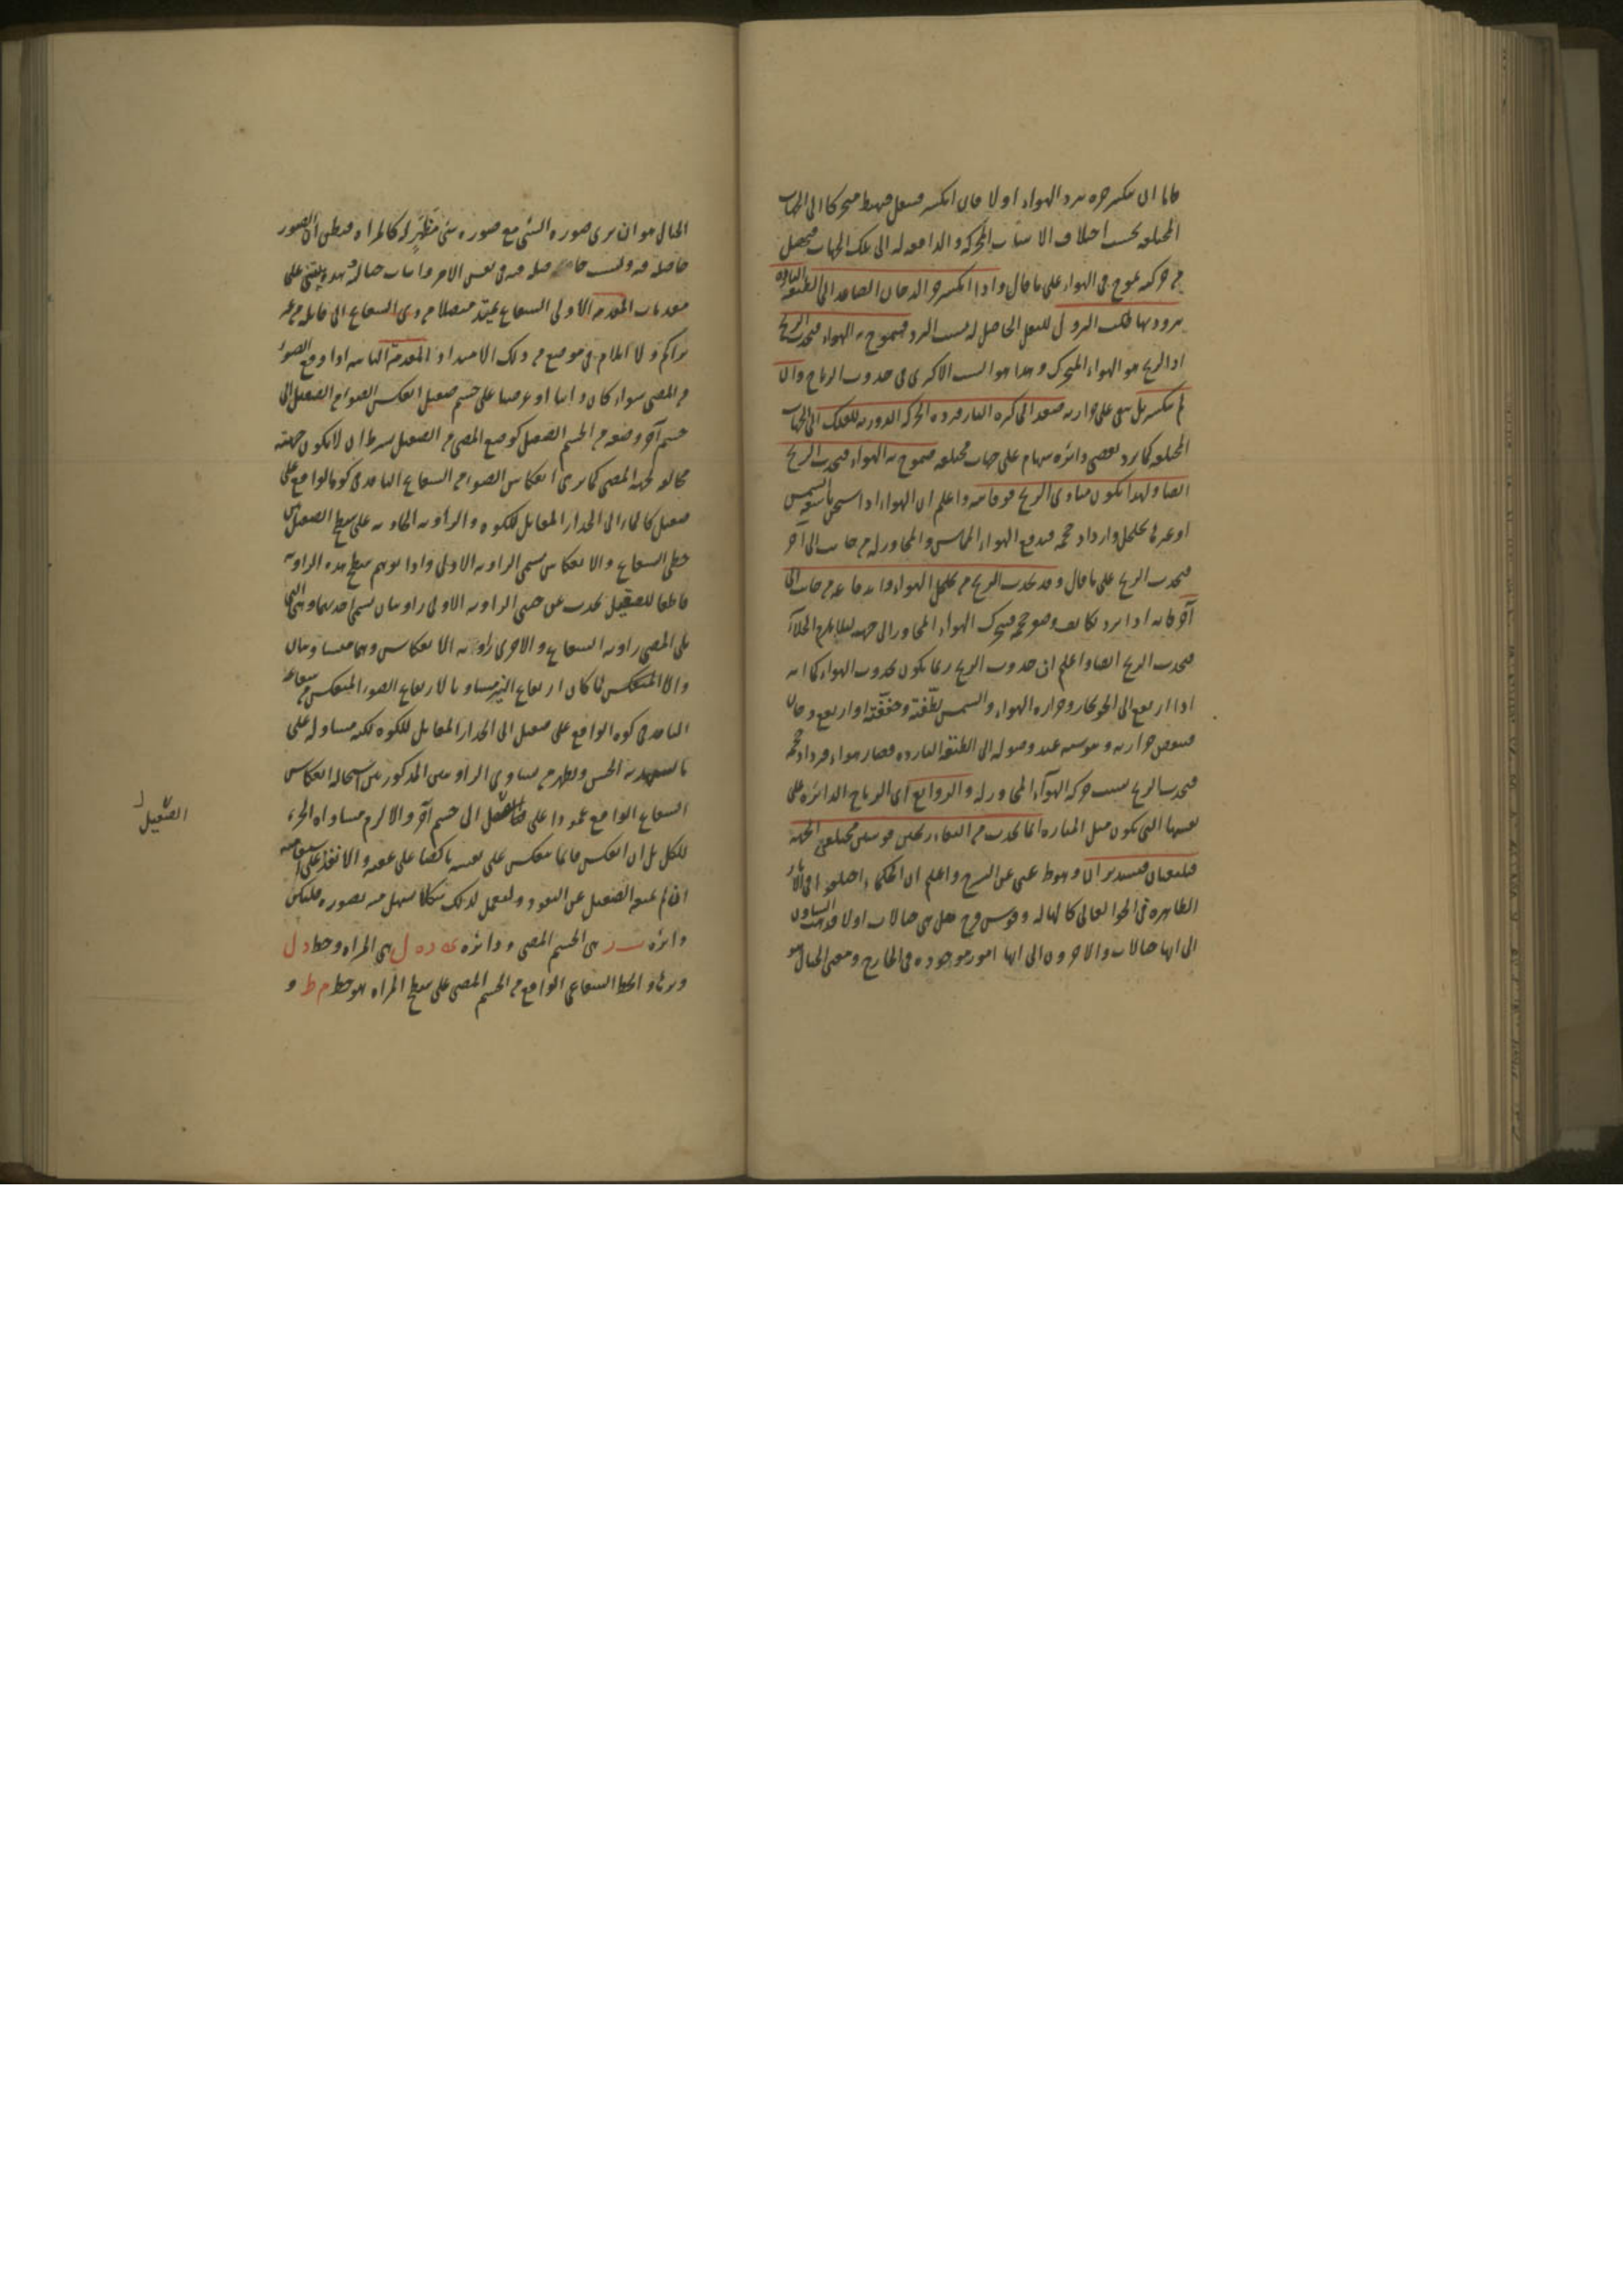 فاما ان ينكسر حره ببرد الهواء اولا فان انكسر فيثقل فيهبط متحركا الى الجهات
المختلفة بحسب اختلاف الاسباب المحركة والدافعة له الى تلك الجهات فيحصل
من حركته تموج فى الهواء على ما قال واذا انكسر حر الدخان الصاعد الى الطبقة الباردة
ببرودتها فيكسب النزول للثقل الحاصل له بسبب البرد فيتموج به الهواء فيحدث الريح
اذ الريح هو الهواء المتحرك وهذا هو السبب الاكثرى فى حدوث الرياح وان
لم ينكسر بل بقى على حرارته فيصعد الى كرة النار فيرده الحركة الدورية للفلك الى الجهات
المختلفة كما يرد بعض دائرة سهام على جهات مختلفة فيتموج به الهواء فيحدث الريح
ايضا ولهذا يكون مبادى الريح فوقانية واعلم ان الهواء اذا اسخن باشعة الشمس
او غيرها تخلخل وازداد حجمه فيدفع الهواء المماس والمجاور له من جانب الى آخر
فيحدث الريح على ما قال وقد يحدث الريح من تخلخل الهواء واندفاعه من جانب الى
آخر فانه اذا برد تكاثف وصغر حجمه فيتحرك الهواء المجاور الى جهته لئلا يلزم الخلاء
فيحدث الريح ايضا واعلم ان حدوث الريح ربما يكون بحدوث الهواء كما انه
اذا ارتفع الى الجو بخار وحرارة الهواء والشمس لطّفته وخففته او ارتفع دخان
فينقص حرارته ويبوسته عند وصوله الى الطبقة الباردة فصار هواء فيزداد حجمه
فيحدث الريح بسبب حركة الهواء المجاور له والزوابع اى الرياح الدائرة على
نفسها التى يكون مثل المنارة انما يحدث من التقاء ريحين قويتين مختلفى الجهة
فيلتقيان فتستديران وهو ط غنى عن الشرح واعلم ان الحكماء اختلفوا فى الآثار
الظاهرة فى الجو العالى كالهالة وقوس قزح هل هى خيالات اولا فذهب المشاؤون
الى انها خيالات والآخرون الى انها امور موجودة فى الخارج ومعنى الخيال هو
الخيال هو ان يرى صورة الشئ مع صورة شئ مَظهَرٍ له كالمرآة فيظن ان الصورة
حاصلة فيه وليست حاصلة فيه فى نفس الامر واثبات خيالية هذه يبتنى على
مقدمات المقدمة الاولى الشعاع يمتد متصلا من ذى الشعاع الى قابله من غير
تراكم ولا انثلام فى موضع من ذلك الامتداد المقدمة الثانية اذا وقع الضوء
من المضئ سواء كان ذاتيا او عرضيا على جسم صقيل انعكس الضوء من الصقيل الى
جسم آخر وضعه من الجسم الصقيل كوضع المضئ من الصقيل بشرط ان لا يكون جهته
مخالفة لجهة المضئ كما يرى انعكاس الضوء من الشعاع النافذ فى كوة الواقع على
صقيل كالماء الى الجدار المقابل للكوة والزاوية الحادثة على سطح الصقيل بين
خطى الشعاع والانعكاس تسمى الزاوية الاولى واذا توهم سطح هذه الزاوية
قاطعا للصقيل يحدث عن جنبى الزاوية الاولى زاويتان تسمى احديهما وهى التى
تلى المضئ زاوية الشعاع والاخرى زاوية الانعكاس وهما متساويتان
والا لما كان ارتفاع النير مساويا لارتفاع الضوء المنعكس من شعاعه
النافذ فى كوة الواقع على صقيل الى الجدار المقابل للكوة لكنه مساو له على
ما يشهد به الحس ويظهر من تساوى الزاويتين المذكورتين استحالة انعكاس
الشعاع الواقع عمودا على الصقيل الى جسم آخر والا لزم مساواة الجزء
للكل بل ان انعكس فانما ينعكس على نفسه ناكصا على عقبه والا نفذ على استقامته
ان لم يمنعه الصقيل عن النفوذ ولنعمل لذلك شكلا يسهل منه تصوره فليكن
دائرة ب ر هى الجسم المضئ ودائرة ى د ه ل هى المرآة وخط د ل
وترها والخط الشعاعى الواقع من الجسم المضئ على سطح المرآة هو خط م ط و
الصقيل